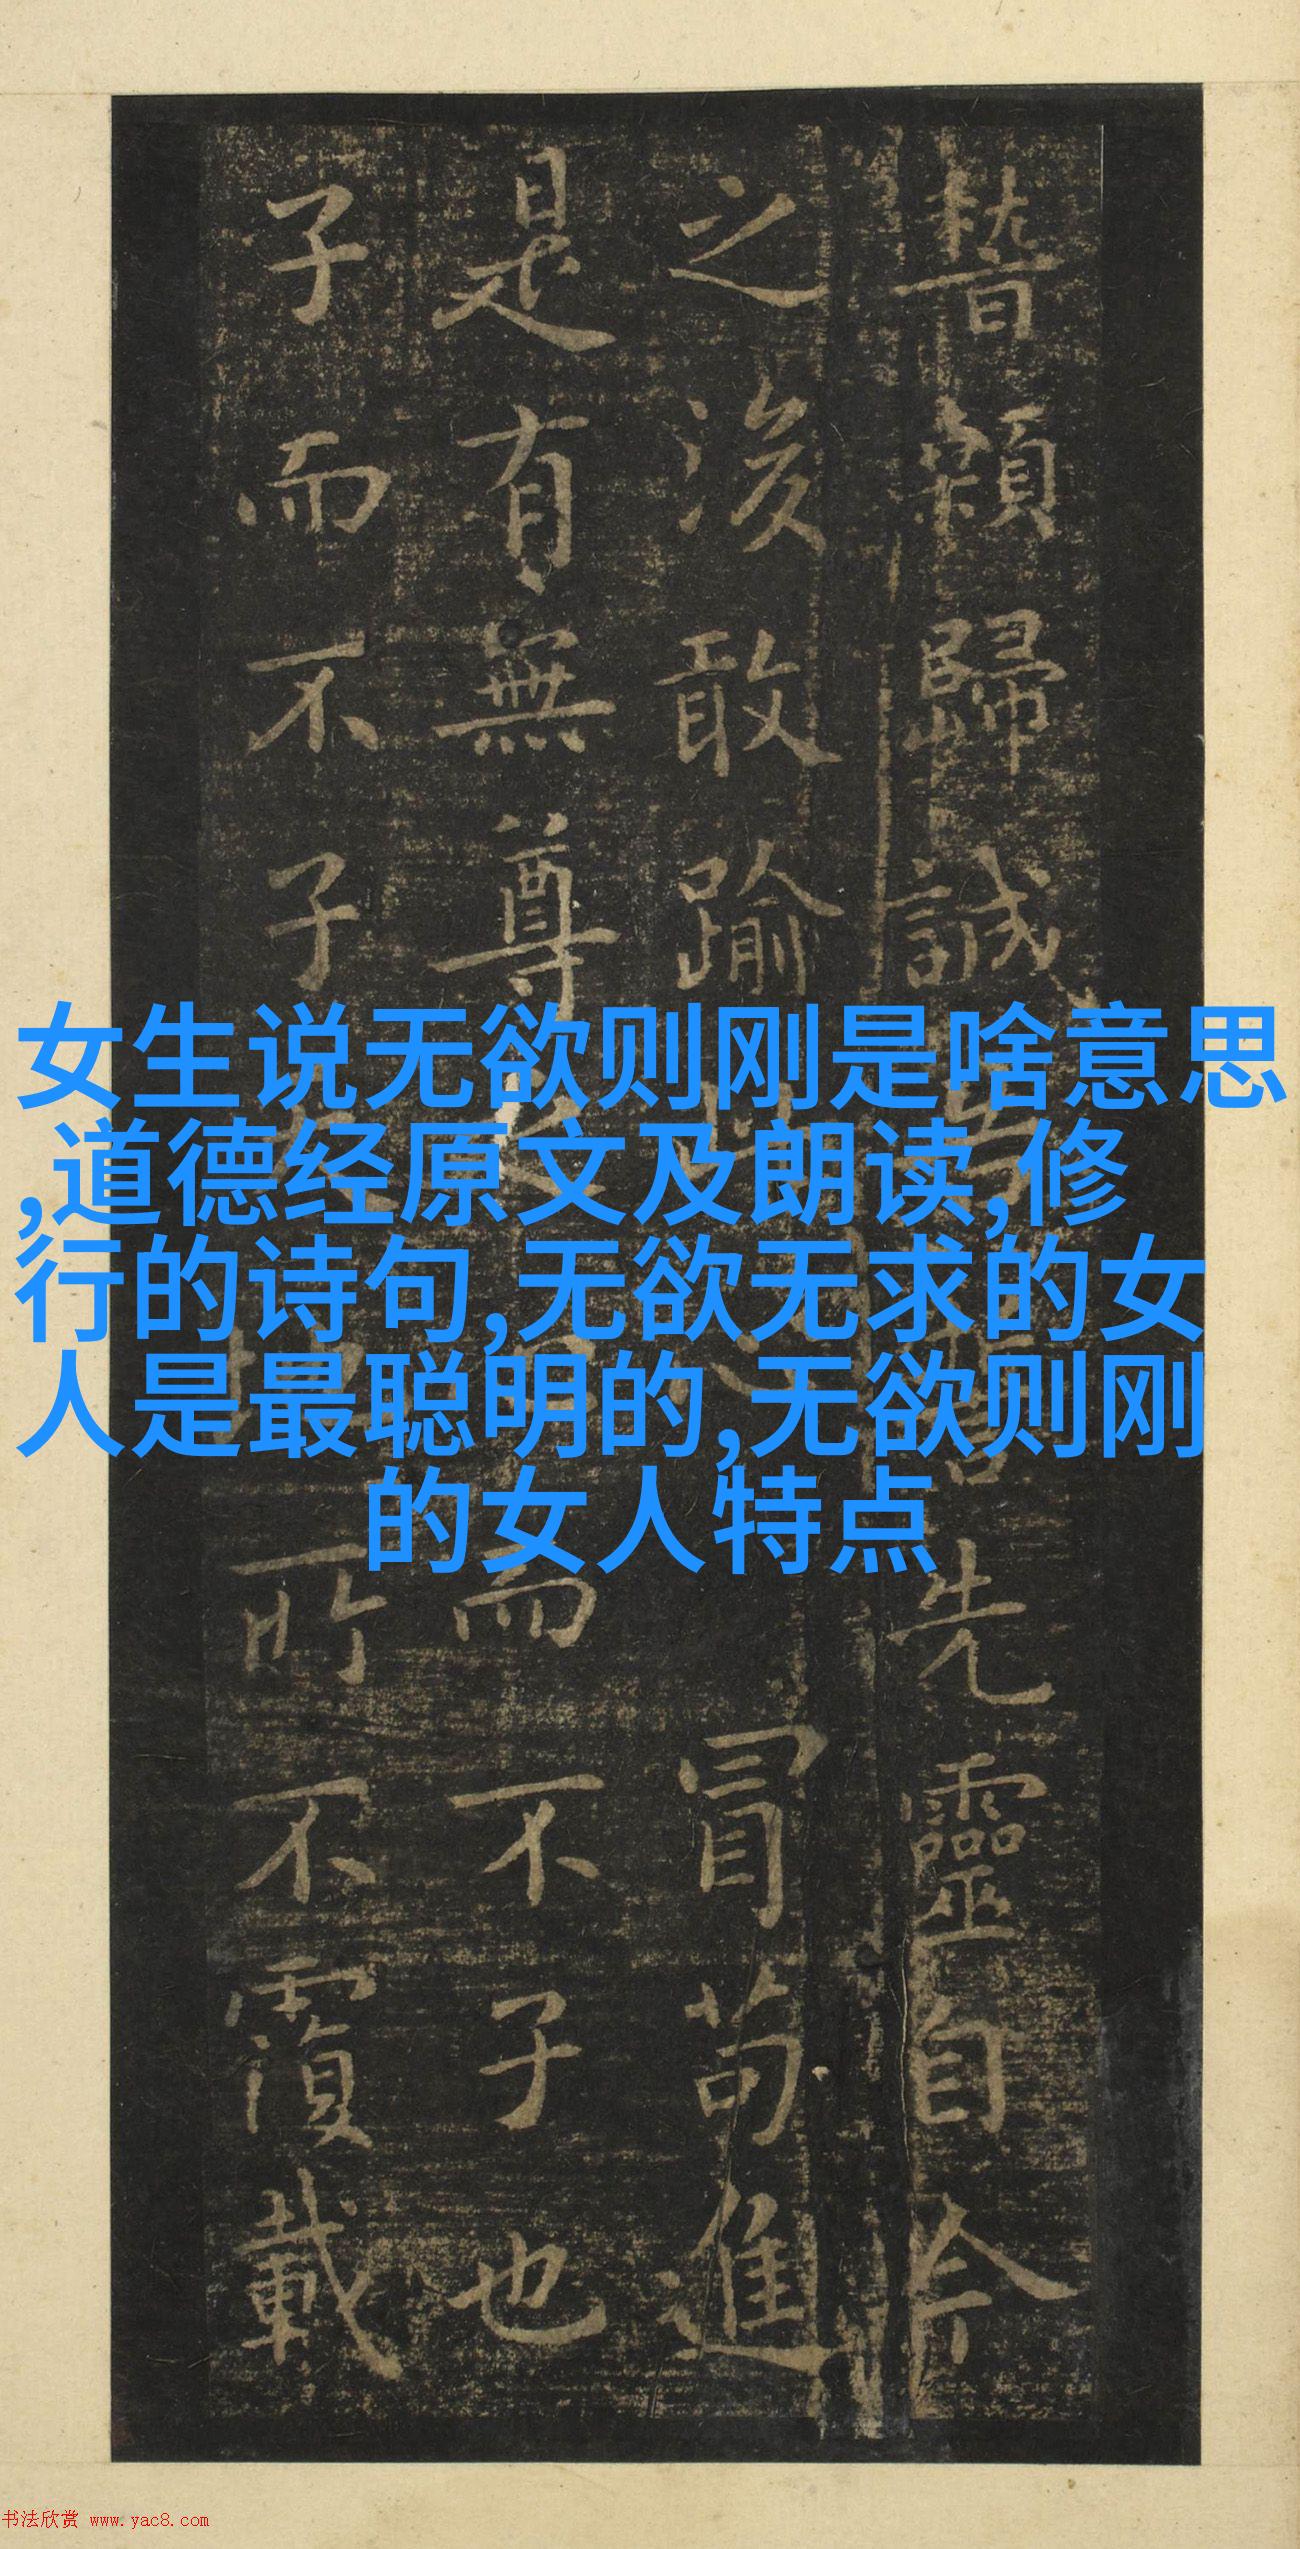 稽顙歸誠先靈自今
之後敢踰冒苟進
是有無尊而不子也
子而不子所不覆載
女生说无欲则刚是啥意思
,道德经原文及朗读,修
行的诗句,无欲无求的女
人是最聪明的,无欲则刚
的女人特点
书法欣赏 www.yac8.com